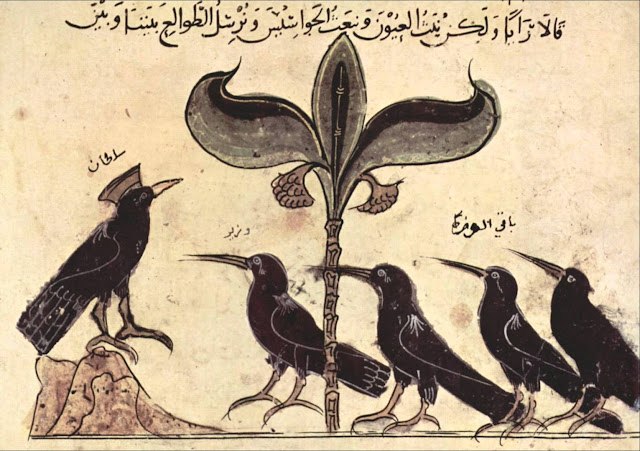 قالا رايا ولكن نبث العيون ونبعث الجواسيس ونرسل الطوالع بيننا وبين
سلطان
وزير
باقي الوزرا